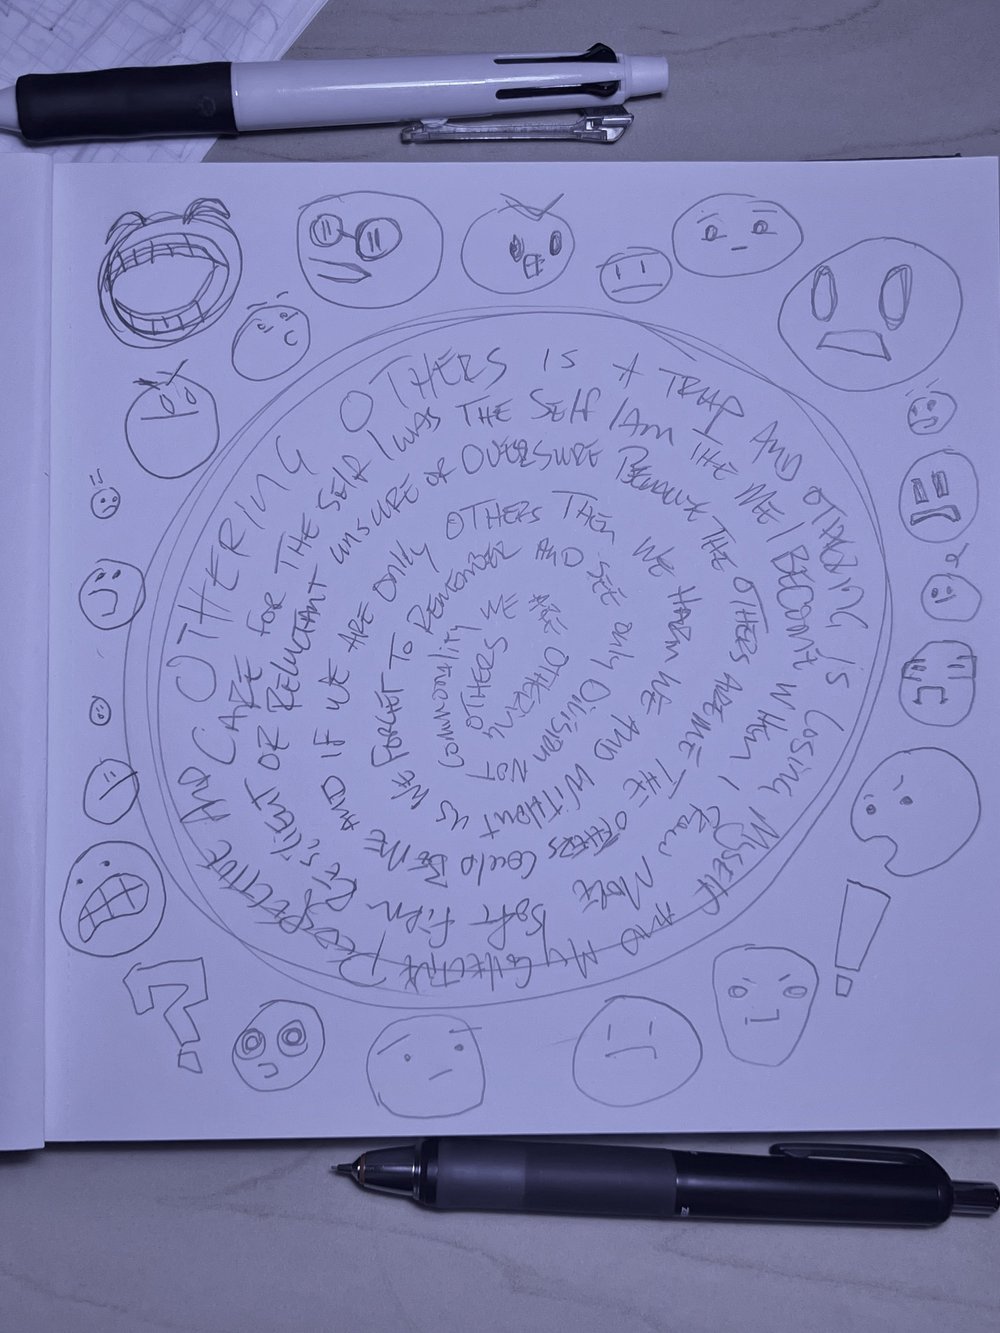 OTHERING OTHERS IS A TRAP AND OTHERING IS LOSING MYSELF AND MY COLLECTIVE PERSPECTIVE
AND CARE FOR THE SELF I WAS THE SELF I AM THE ME I BECOME WHEN I GROW MORE SOFT FIRM
RESILIENT OR RELUCTANT UNSURE OR OVERSURE BECAUSE THE OTHERS ARE ME THE OTHERS COULD BE ME
AND IF WE ARE ONLY OTHERS THEN WE HARM WE AND WITHOUT US
WE FORGET TO REMEMBER AND SEE ONLY DIVISION NOT
COMMONALITY
OTHERS WE ARE OTHERING
?
!